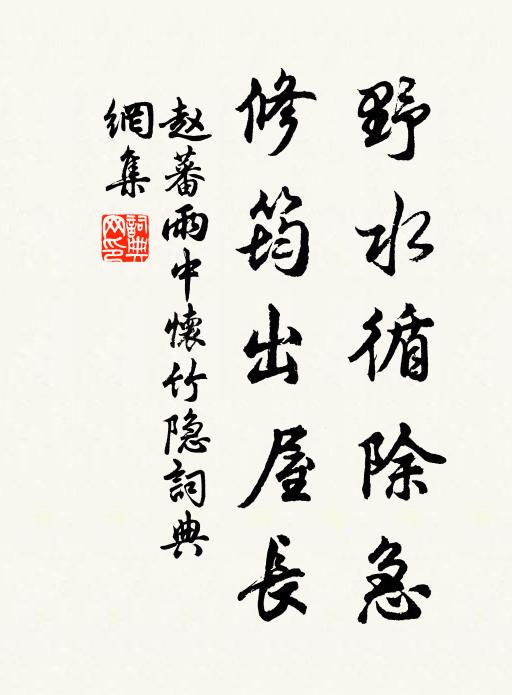 野水循除急
修筠出屋長
赵蕃雨中懷竹隐詞典
網集
詞典网印